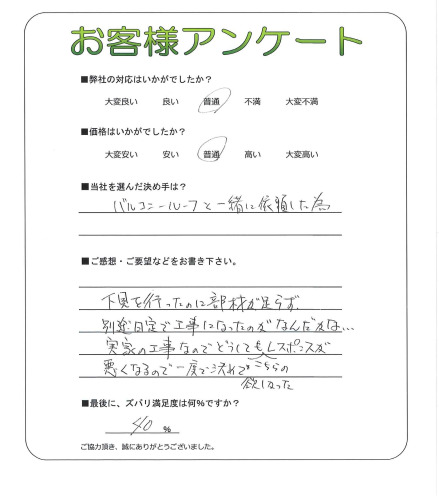 お客様アンケート
■弊社の対応はいかがでしたか？
大変良い 良い 普通 不満 大変不満
■価格はいかがでしたか？
大変安い 安い 普通 高い 大変高い
■当社を選んだ決め手は？
バルコニールーフと一緒に依頼した為
■ご感想・ご要望などをお書き下さい。
下見を行ったのに部材が足らず、
別途日定で工事になったのがなんだかな…
実家の工事なのでどうしてもレスポンスが
悪くなるので一度で決れて こちらの
欲しかった
■最後に、ズバリ満足度は何%ですか？
40 %
ご協力頂き、誠にありがとうございました。